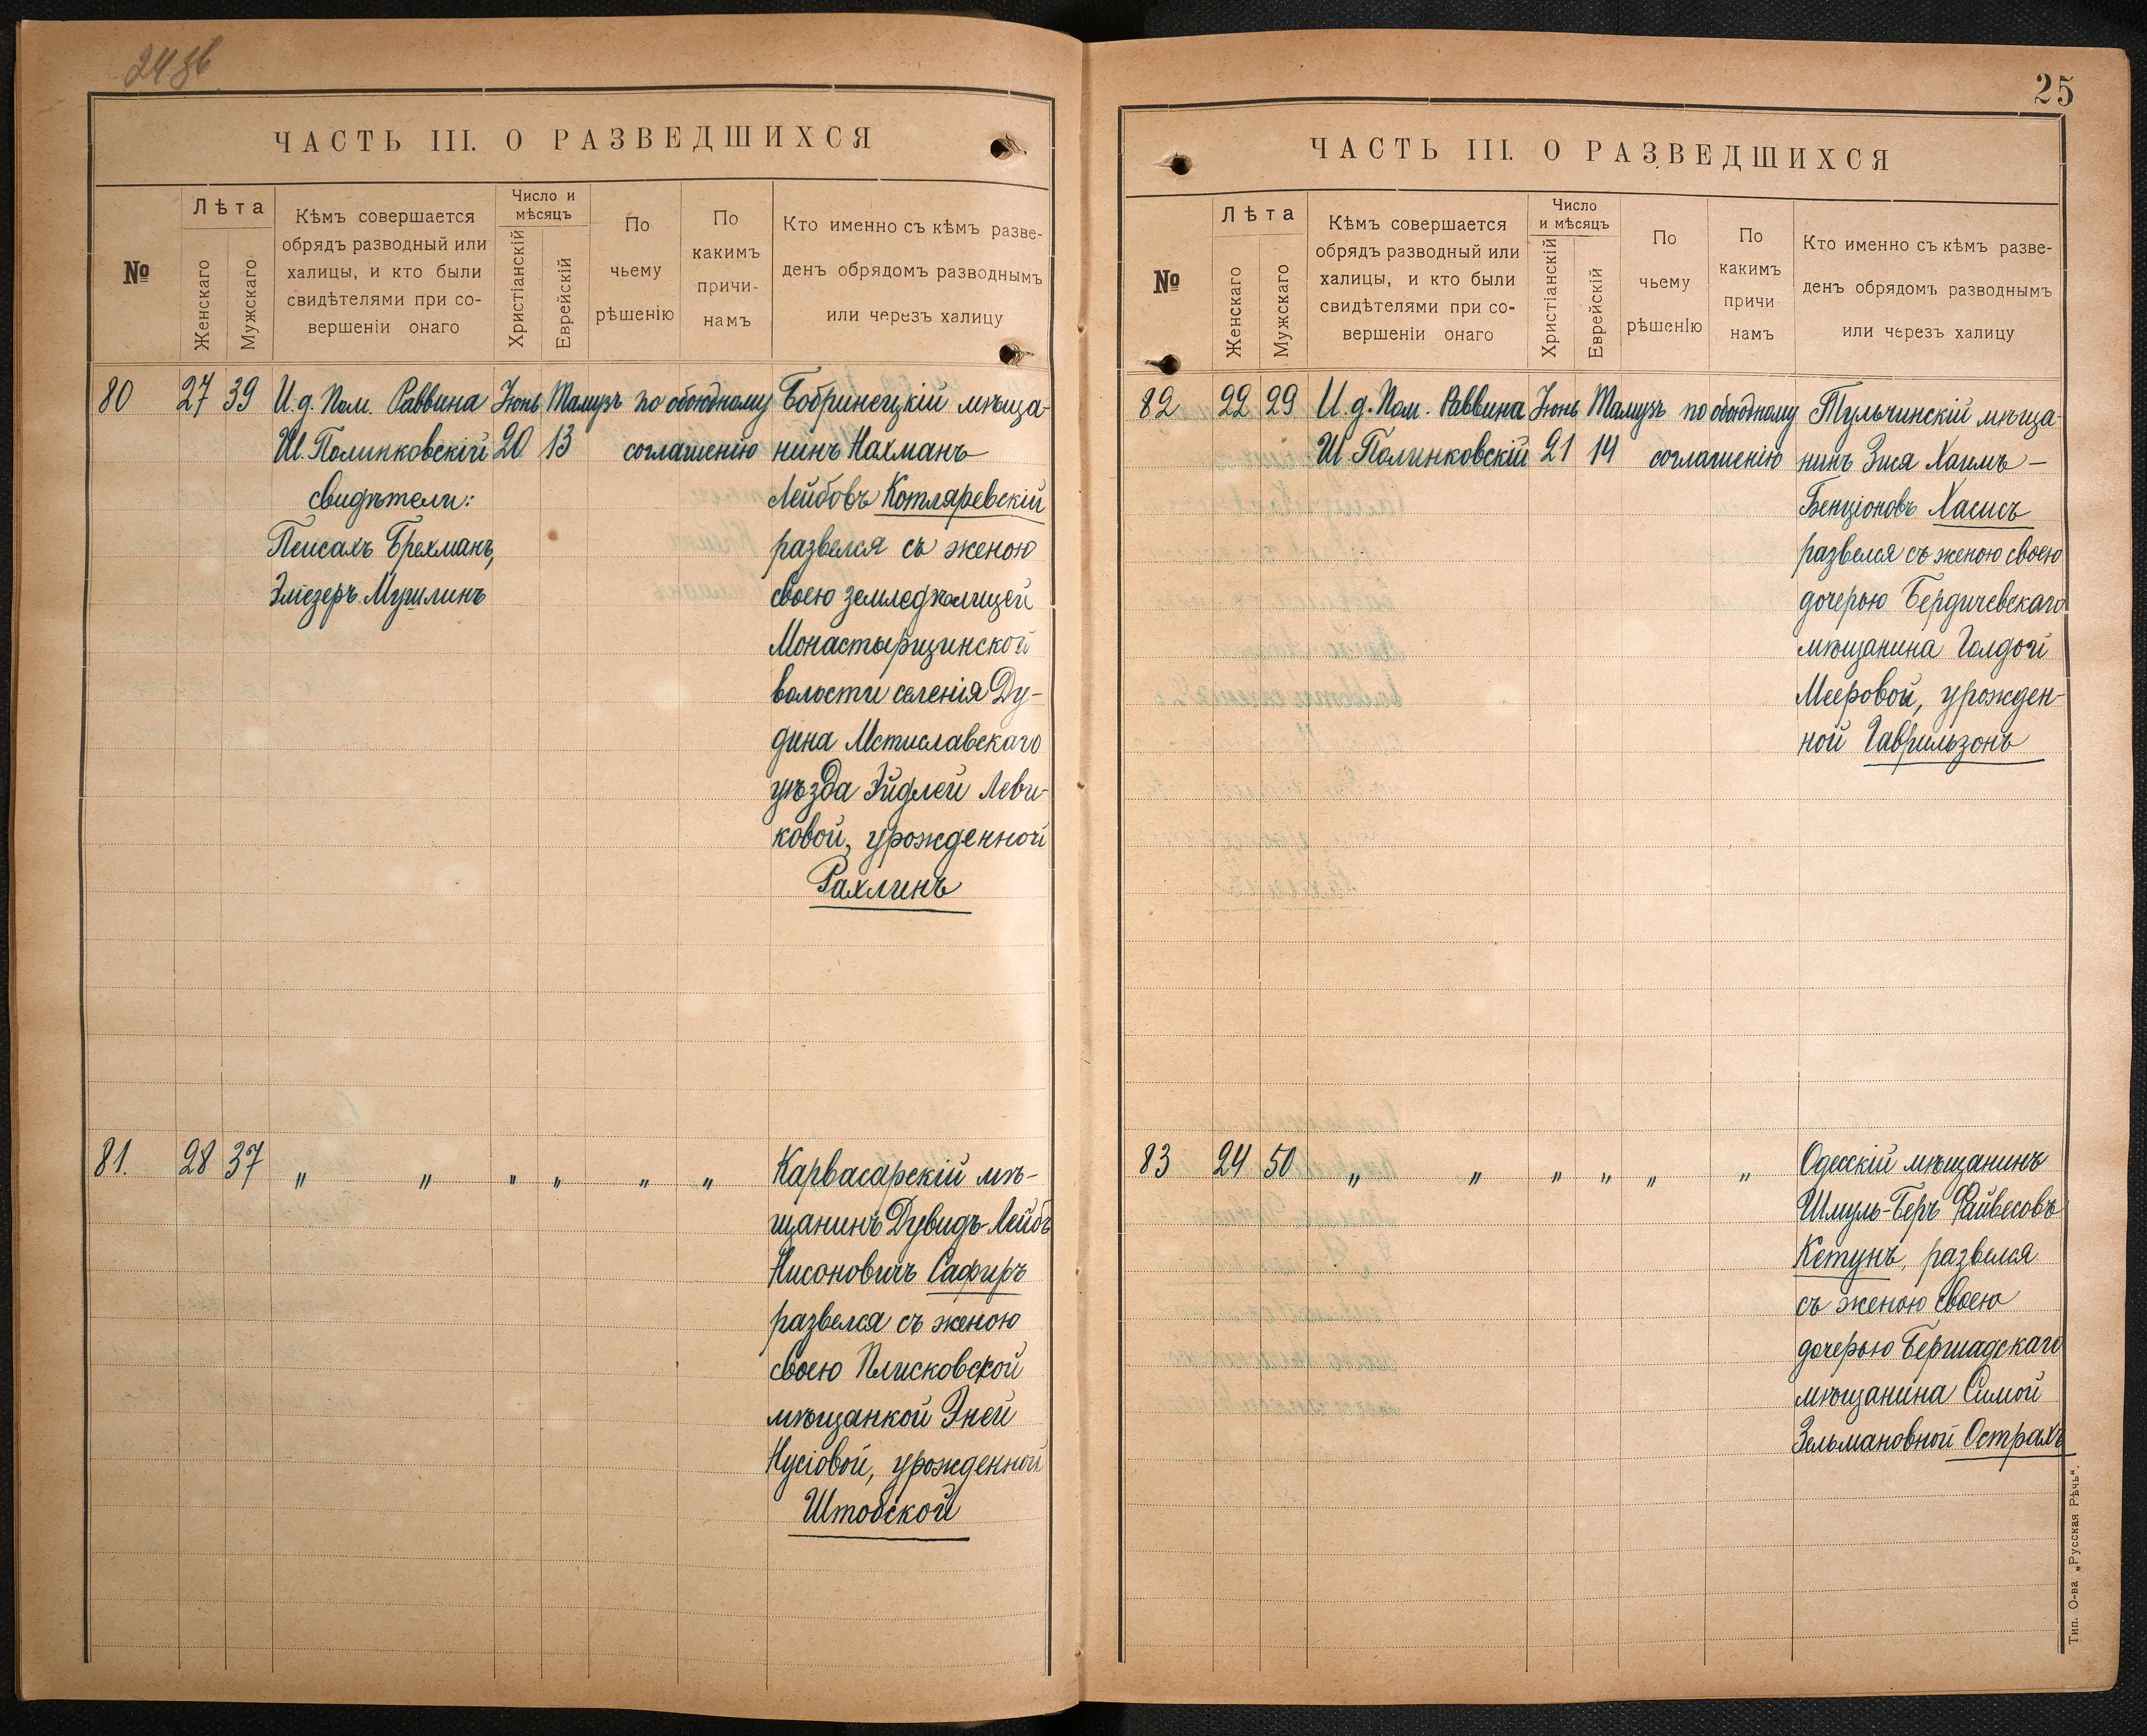 ЧАСТЬ III. О РАЗВЕДШИХСЯ
№
Лѣта
Женскаго
Мужскаго
Кѣмъ совершается
обрядъ разводный или
халицы, и кто были
свидѣтелями при со-
вершеніи онаго
Число и
мѣсяцъ
Христіанскій
Еврейскій
По
чьему
рѣшенію
По
какимъ
причи-
намъ
Кто именно съ кѣмъ разве-
денъ обрядомъ разводнымъ
или черезъ халицу
80 27 39 И.д. Пом. Раввина Іюнь Тамузъ по обоюдному Бобринецкій мѣща-
Ш. Полинковскій 20 13 соглашенію нинъ Нахманъ
свидѣтели: Лейбовъ Котляревскій
Пейсахъ Брехманъ, развелся съ женою
Эліезеръ Мушлинъ своею земледѣлицей
Монастырщинской
волости селенія Ду-
дина Мстиславскаго
уѣзда Эйдлей Леви-
ковой, урожденной
Рахлинъ
81. 28 37 " " " " " " Карвасарскій мѣ-
щанинъ Дувидъ-Лейбъ
Нисоновичъ Сафиръ
развелся съ женою
своею Плисковской
мѣщанкой Эней
Нусіовой, урожденной
Штобской
25
ЧАСТЬ III. О РАЗВЕДШИХСЯ
№
Лѣта
Женскаго
Мужскаго
Кѣмъ совершается
обрядъ разводный или
халицы, и кто были
свидѣтелями при со-
вершеніи онаго
Число
и мѣсяцъ
Христіанскій
Еврейскій
По
чьему
рѣшенію
По
какимъ
причи
намъ
Кто именно съ кѣмъ разве-
денъ обрядомъ разводнымъ
или черезъ халицу
82 22 29 И.д. Пом. Раввина Іюнь Тамузъ по обоюдному Тульчинскій мѣща-
Ш Полинковскій 21 14 соглашенію нинъ Зися Хаимъ-
Бенціоновъ Хасисъ
развелся съ женою своею
дочерью Бердичевскаго
мѣщанина Голдой
Мееровой, урожден-
ной Гаврильзонъ
83 24 50 " " " " " " Одесскій мѣщанинъ
Шмуль-Беръ Файвесовъ
Кетунъ, развелся
съ женою своею
дочерью Бершадскаго
мѣщанина Симой
Зельмановной Острахъ
Тип. О-ва „Русская Рѣчь".